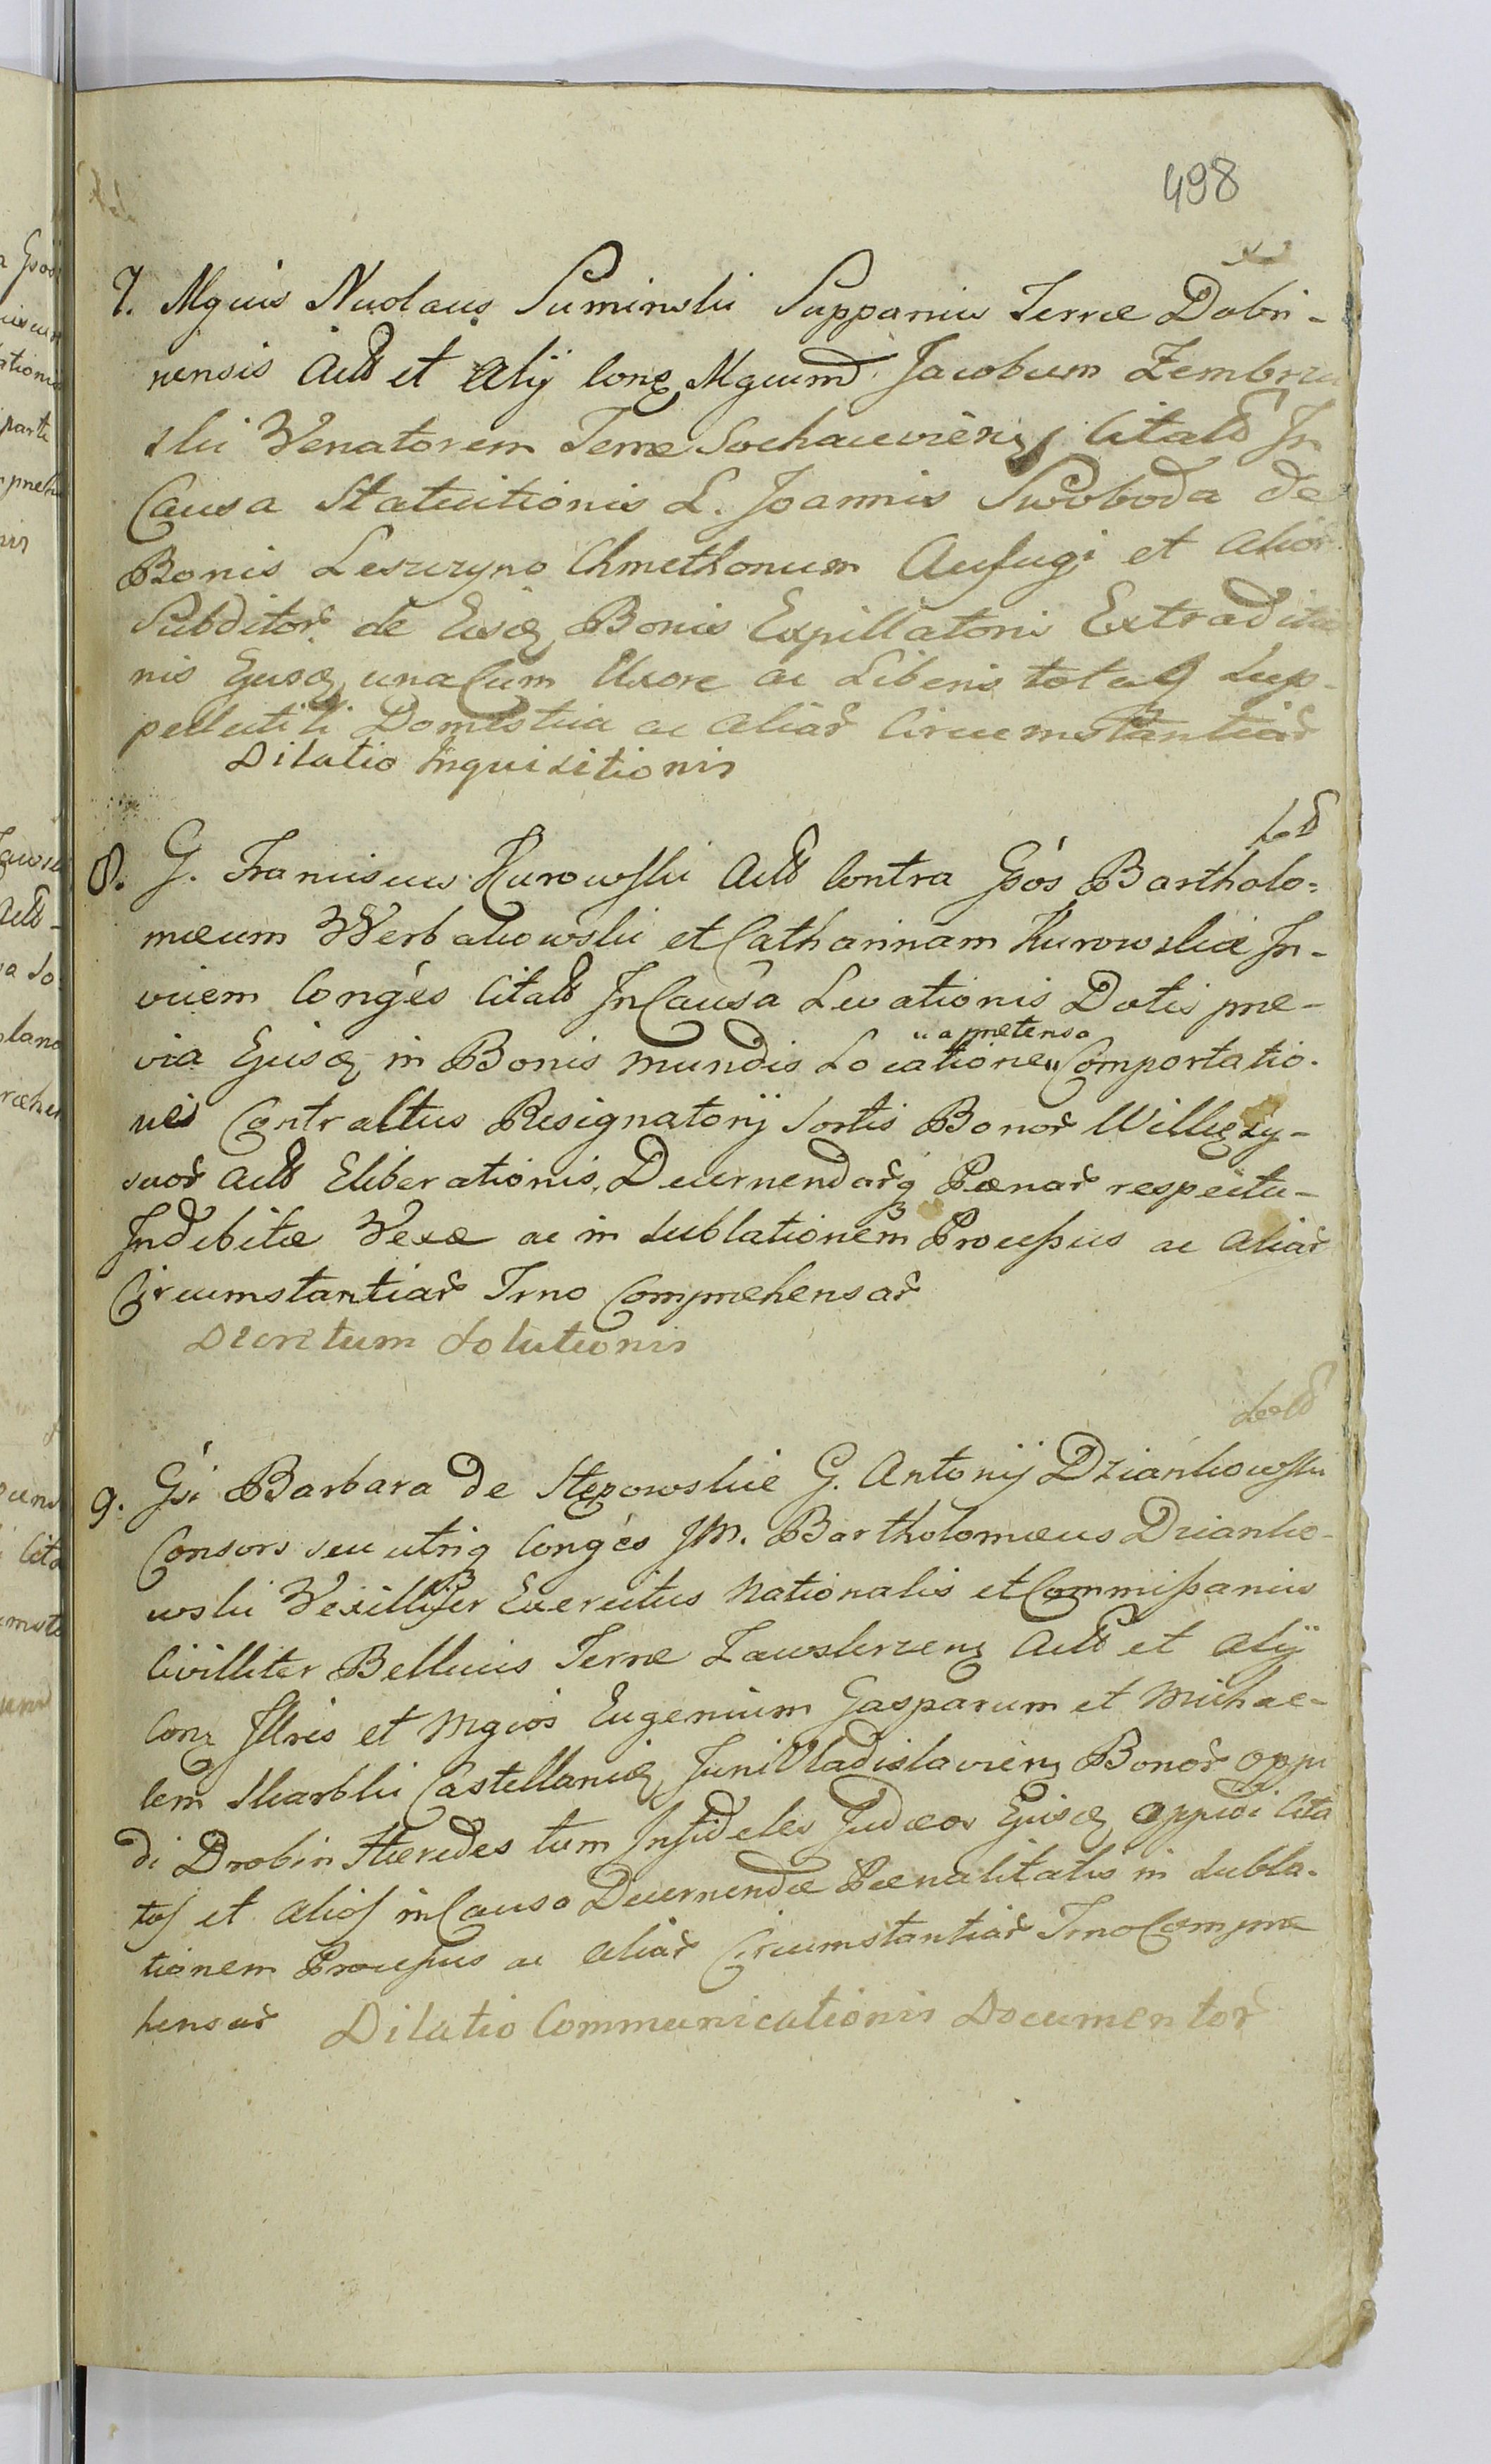 498
7. Mgcus Nicolaus Suminski Suppanius Terræ Dobri-
nensis Actt et Alij Conq Mgcumd Jacobum Zembrzu
ski Venatorem Terræ Sochacviens Citatt In
Causa Statuitionis L. Joannis Swoboda de
Bonis Leszczyno Chmethonum Aufugi et Alior
Subditor de Eisd Bonis Expillatoris Extraditio
nis Ejusd una Cum Uxore ac Liberis totaq Sup-
pellectili Domestica ac aliar Circumstantiar
Dilatio Inquisitionis
8. G. Franciscus Kurowski Actt Contra Gsós Bartholo=
mæum Werbakowski et Catharinam Kurowskie In-
vicem Congés Citatt In Causa Levationis Dotis præ-
"a prætensa
via Ejusd in Bonis mundis Locatione" Comportatio-
nis Contractus Resignatorij Sortis Bonor Willq Ły-
suor Actt Eliberationis, Decernendarq Pænar respectu-
Indebitæ Vexæ ac in sublationem Processus ac aliar
Circumstantiar Trno Comprehensar
Decretum Solutionis
9. Gsi Barbara de Stępowskie G. Antonij Dziankowski
Consors seu utriq Congés JM. Bartholomæus Dzianko-
wski Vexillifer Exercitus Nationalis et Commissarius
Civilliter Bellicus Terræ Zawskrzens Actt et Alij
Conq Illres et Mgcos Eugenium Gasparum et Micha e-
lem Skarbki Castellanid Juni Vladislaviens Bonor Oppi
di Drobin Hæredes tum Infideles Judæos Ejusd Oppidi Cita
tos et alios in Causa Decernendæ Pænalitatis in subla-
tionem Processus ac aliar Circumstantiar Trno Compræ
hensar Dilatio Communicationis Documentor